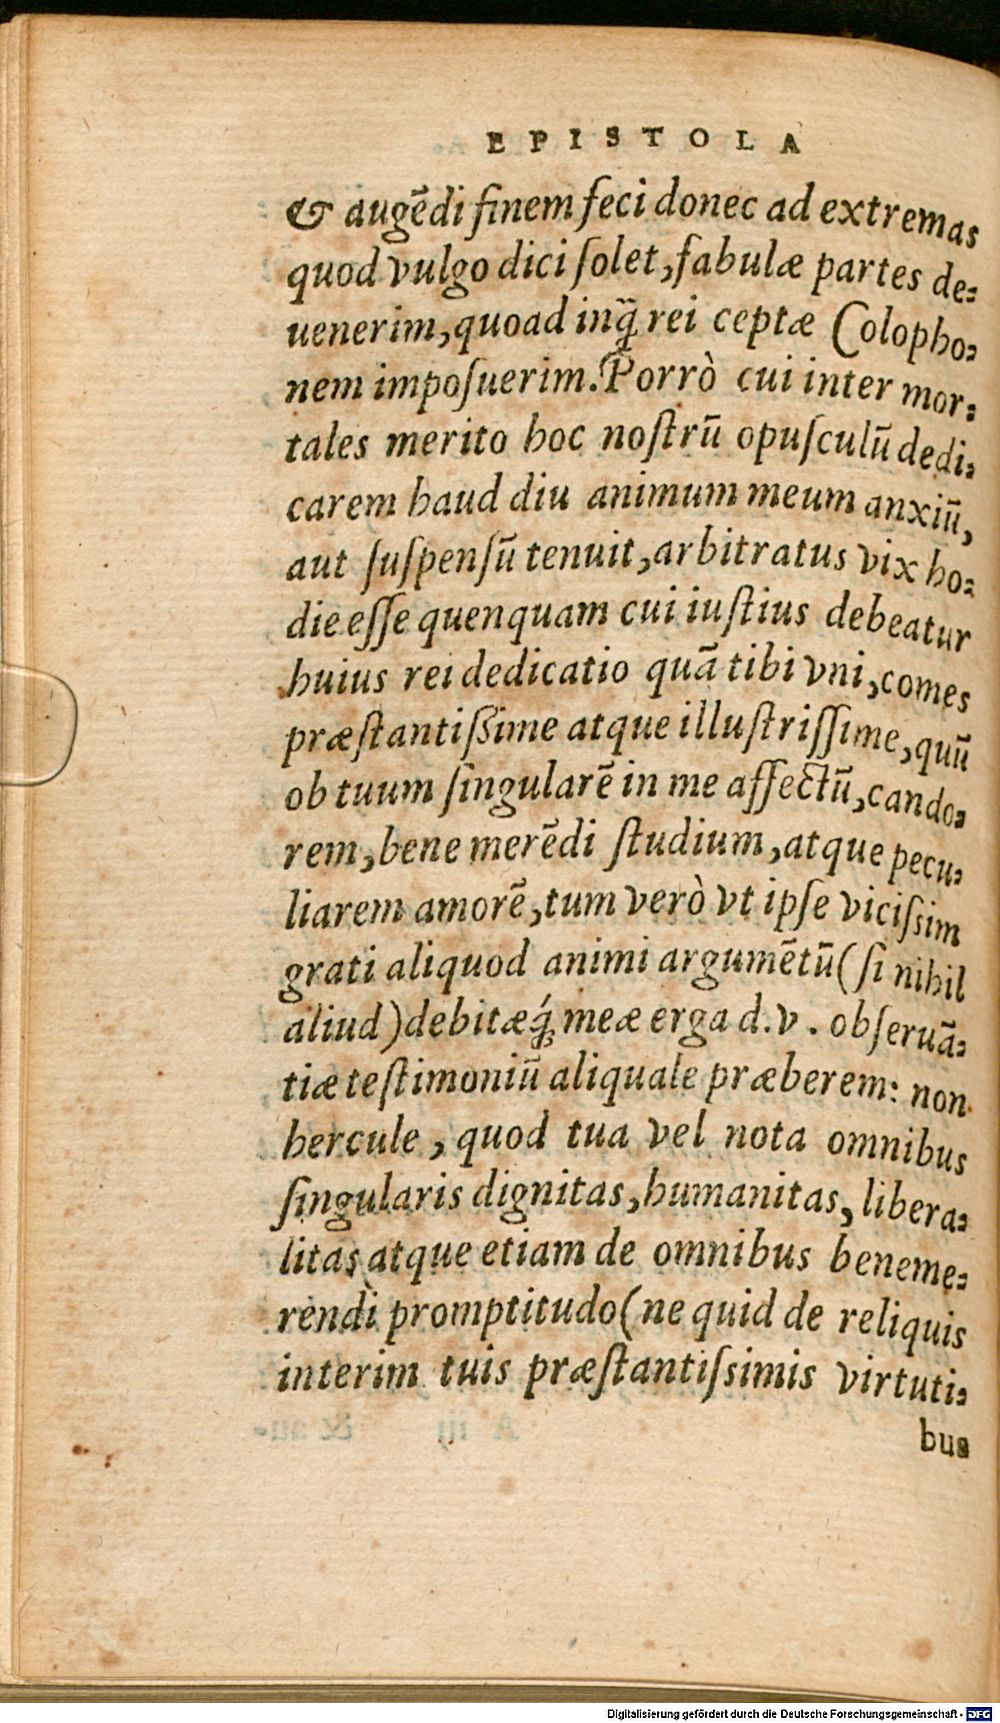 EPISTOLA
& augēdi finem feci donec ad extremas
quod vulgo dici ſolet, fabulæ partes de⸗
uenerim, quoad inq̃ rei ceptæ Colopho⸗
nem impoſuerim. Porrò cui inter mor⸗
tales merito hoc noſtrū opuſculū dedi⸗
carem haud diu animum meum anxiū,
aut ſuſpenſū tenuit, arbitratus vix ho⸗
die eſſe quenquam cui iuſtius debeatur
huius rei dedicatio quā tibi vni, comes
præſtantißime atque illuſtriſſime, quū
ob tuum ſingularē in me affectū, cando⸗
rem, bene merēdi ſtudium, atque pecu⸗
liarem amorē, tum verò vt ipſe viciſsim
grati aliquod animi argumētū (ſi nihil
aliud) debitæq́; meæ erga d. v. obſeruā⸗
tiæ teſtimoniū aliquale præberem: non
hercule, quod tua vel nota omnibus
ſingularis dignitas, humanitas, libera⸗
litas atque etiam de omnibus beneme⸗
rendi promptitudo (ne quid de reliquis
interim tuis præſtantiſsimis virtuti⸗
bus
Digitalisierung gefördert durch die Deutsche Forschungsgemeinschaft - DFG